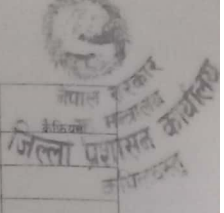 नेपाल सरकार
मन्त्रालय
कैफियत
जिल्ला प्रशासन कार्यालय